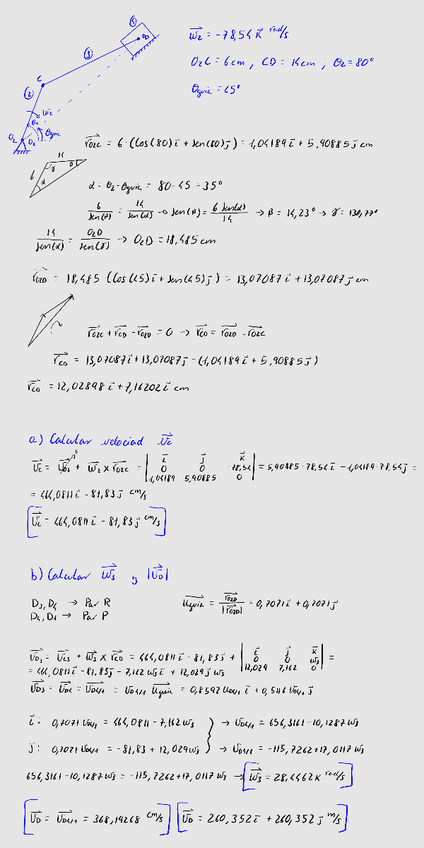 ω2 = -78,54 k rad/s
O2C = 6cm, CD = 14cm, θ2 = 80°
θguia = 45°
④ ③ ② C D O2 ω2 θ2 θguia
rO2C = 6·(Cos(80)i + Sen(80)j) = 1,04189 i + 5,90885 j cm
14 6 α γ β
α = θ2 - θguia = 80-45 = 35°
6/Sen(β) = 14/Sen(α) → Sen(β) = 6 Sen(α)/14 → β = 14,23° → γ = 130,77°
14/Sen(α) = O2D/Sen(γ) → O2D = 18,485 cm
rO2D = 18,485 (Cos(45)i + Sen(45)j) = 13,07087 i + 13,07087 j cm
rO2C + rCD - rO2D = 0 → rCD = rO2D - rO2C
rCD = 13,07087 i + 13,07087 j - (1,04189 i + 5,90885 j)
rCD = 12,02898 i + 7,16202 i cm
a) Calcular velociad Vc
Vc = VO2 + ω2 x rO2C = | i j k 0 0 -78,54 1,04189 5,90885 0 | = 5,90885·78,54 i - 1,04189·78,54 j =
= 464,0811 i - 81,83 j cm/s
Vc = 464,0811 i - 81,83 j cm/s
b) Calcular ω3 y |VD|
D3, D4 → Par R
D4, D1 → Par P
uguia = rO2D/|rO2D| = 0,7071 i + 0,7071 j
VD3 = VC3 + ω3 x rCD = 464,0811 i - 81,83 j + | i j k 0 0 ω3 12,029 7,162 0 | =
= 464,0811 i - 81,83 j - 7,162 ω3 i + 12,029 j ω3
VD3 = VD4 = VD4/1 = VD4/1 uguia = 0,8592 VD4/1 i + 0,5116 VD4/1 j
i: 0,7071 VD4/1 = 464,0811 - 7,162 ω3 → VD4/1 = 656,3161 - 10,1287 ω3
j: 0,7071 VD4/1 = -81,83 + 12,029 ω3 → VD4/1 = -115,7262 + 17,0117 ω3
656,3161 - 10,1287 ω3 = -115,7262 + 17,0117 ω3 → ω3 = 28,4462 k rad/s
VD = VD4/1 = 368,19268 cm/s VD = 260,352 i + 260,352 j m/s